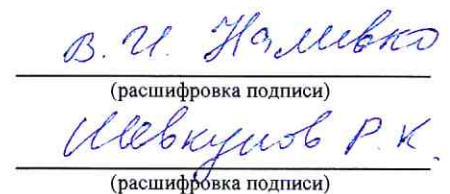 В. И. Наливко
(расшифровка подписи)
Шевкунов Р. К.
(расшифровка подписи)